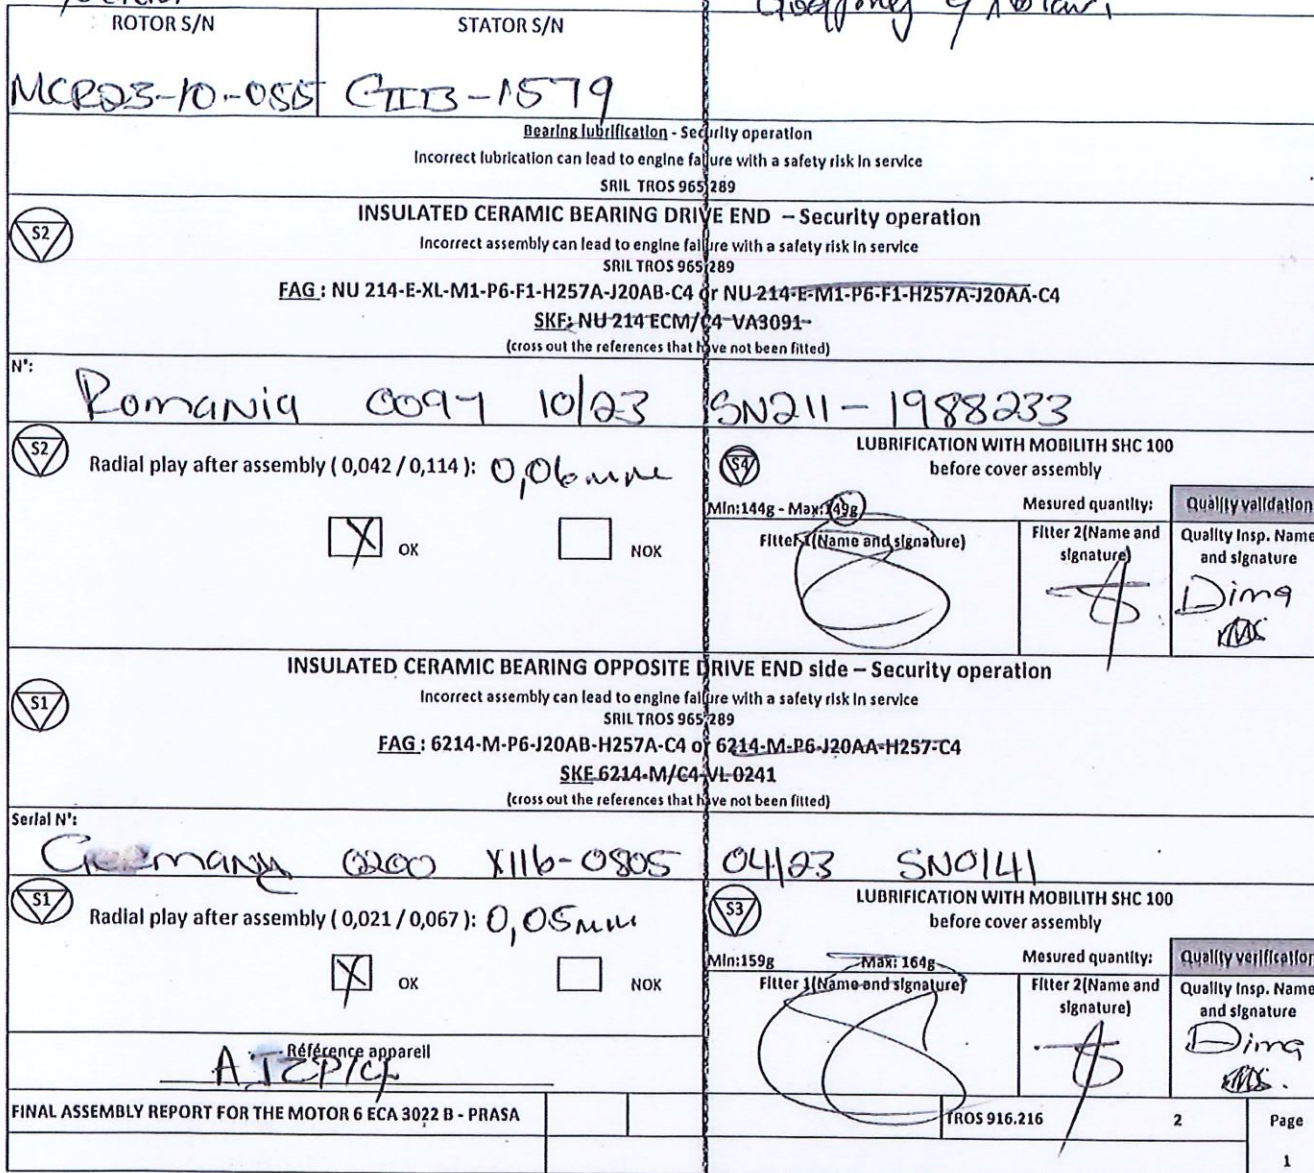 ROTOR S/N
STATOR S/N
MCR23-10-055
1579
Bearing lubrification - Security operation
Incorrect lubrication can lead to engine failure with a safety risk in service
SRIL TROS 965 289
S2
INSULATED CERAMIC BEARING DRIVE END – Security operation
Incorrect assembly can lead to engine failure with a safety risk in service
SRIL TROS 965 289
FAG : NU 214-E-XL-M1-P6-F1-H257A-J20AB-C4 or NU 214-E-M1-P6-F1-H257A-J20AA-C4
SKF: NU 214 ECM/C4 VA3091
(cross out the references that have not been fitted)
N°:
Romania 0097 10/23 SN211-1988233
S2
Radial play after assembly ( 0,042 / 0,114 ): 0,06mm
X OK
NOK
S4
LUBRIFICATION WITH MOBILITH SHC 100
before cover assembly
Min:144g - Max:149g
Mesured quantity:
Quality validation
Fitter 1(Name and signature)
Fitter 2(Name and signature)
Quality Insp. Name and signature
Dima
INSULATED CERAMIC BEARING OPPOSITE DRIVE END side – Security operation
S1
Incorrect assembly can lead to engine failure with a safety risk in service
SRIL TROS 965 289
FAG : 6214-M-P6-J20AB-H257A-C4 or 6214-M-P6-J20AA-H257-C4
SKF 6214-M/C4-VL 0241
(cross out the references that have not been fitted)
Serial N°:
Germany 0200 X116-0805 04/23 SN0141
S1
Radial play after assembly ( 0,021 / 0,067 ): 0,05mm
X OK
NOK
S3
LUBRIFICATION WITH MOBILITH SHC 100
before cover assembly
Min:159g
Max: 164g
Mesured quantity:
Quality verification
Fitter 1(Name and signature)
Fitter 2(Name and signature)
Quality Insp. Name and signature
Dima
Référence appareil
FINAL ASSEMBLY REPORT FOR THE MOTOR 6 ECA 3022 B - PRASA
TROS 916.216
2
Page
1